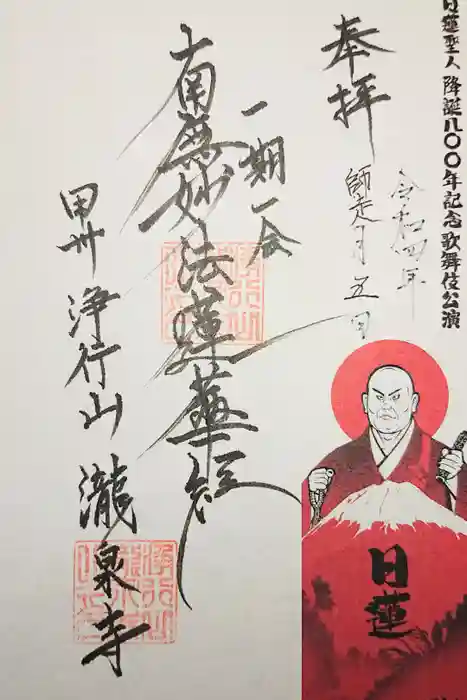 日蓮聖人降誕八〇〇年記念歌舞伎公演
奉拝
令和四年
師走月五日
一期一会
南無妙法蓮華経
甲州 浄行山 瀧泉寺
日蓮